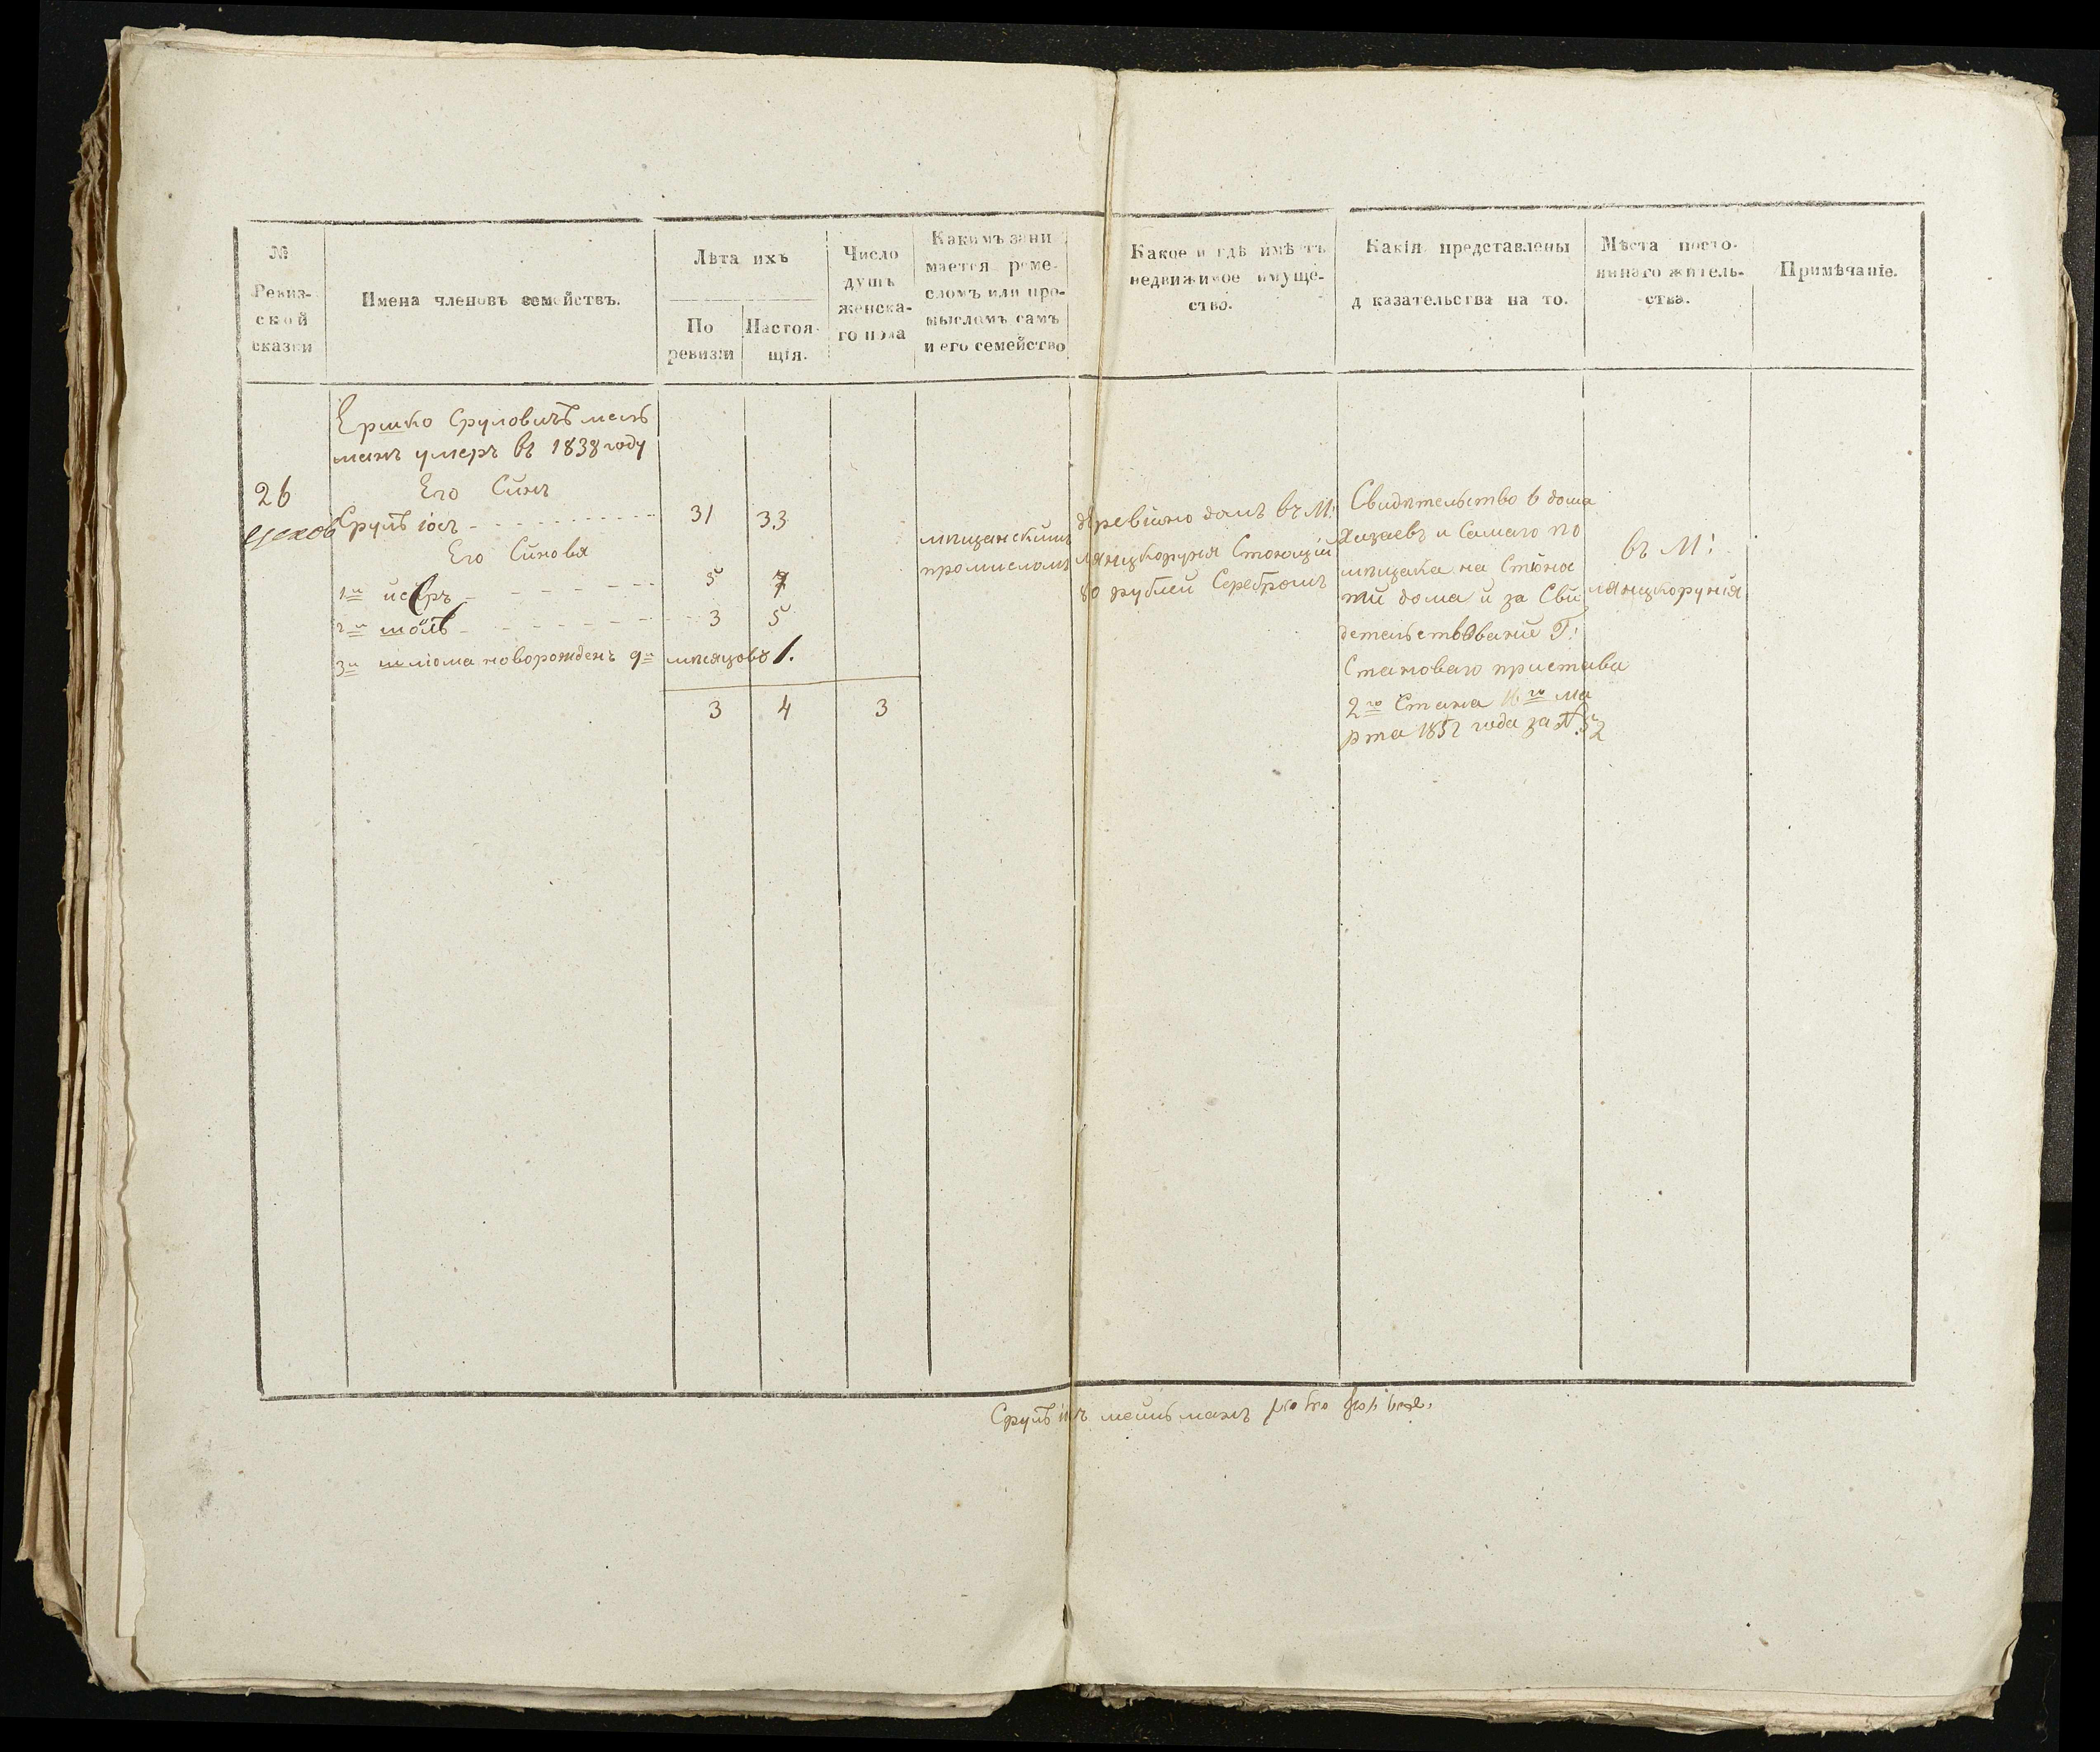 №
Ревиз-
ской
сказки
Имена членовъ семействъ.
Лѣта ихъ
По
ревизіи
Настоя-
щія.
Число
душъ
женска-
го пола
Какимъ зани
мается реме-
сломъ или про-
мысломъ самъ
и его семейство
Какое и гдѣ имѣетъ
недвижимое имуще-
ство.
Какія представлены
д казательства на то.
Мѣста посто-
яннаго житель-
ства.
Примѣчаніе.
Ершко Сруловичъ
манъ умеръ въ 1838 году
26
Его Синъ
Сруль іосъ 31 33
Его Синовя
1й 5 7
2й 3 5
3й шліома новорожденъ 9ъ мѣсяцовъ 1.
3 4 3
мѣщанскимъ
промисломъ
деревіано домъ въ М:
лянцкоруня Стоющій
80 рублей Серебромъ
Свидѣтельство 6 дома
Хазаевъ и Самаго по
мѣщика на Стіоно
сти дома и за Сви
детельствованіе Г:
Становаго пристава
2го Стана 16го ма
рта 1852 года за № 52
въ М:
лянцкоруния
Сруль іосъ мейльманъ